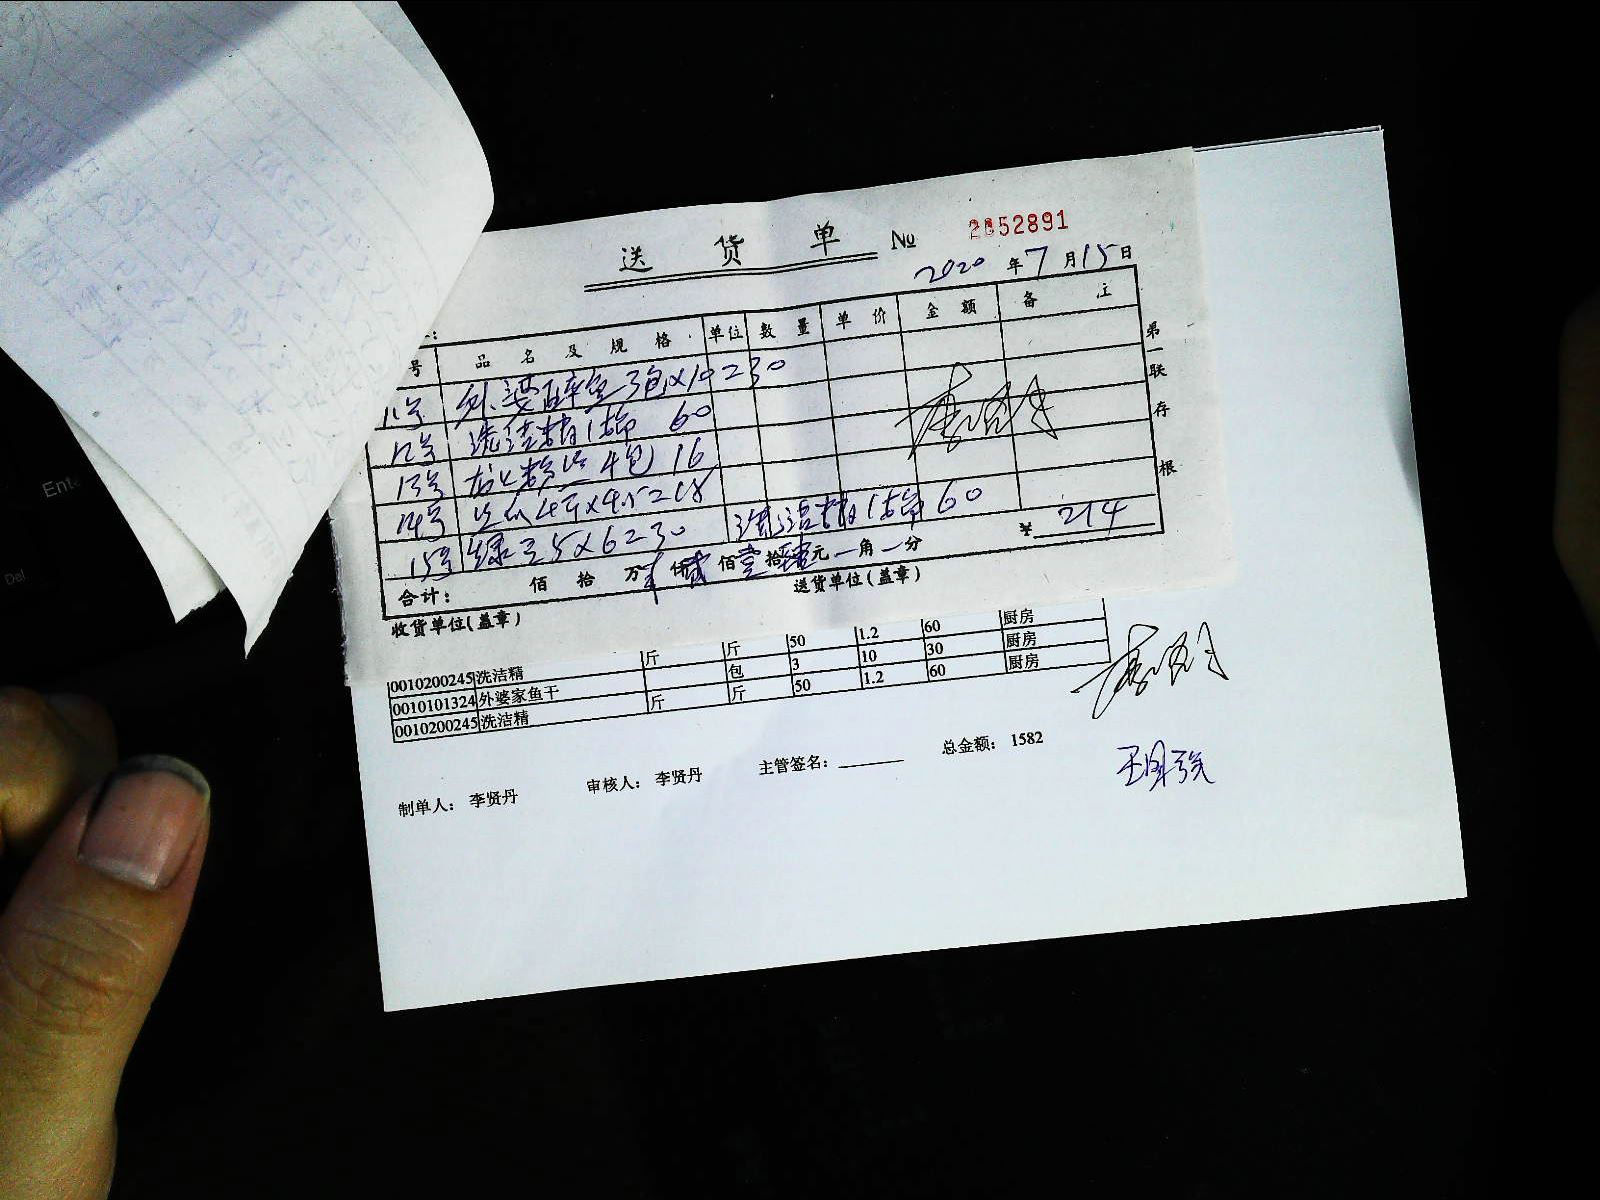 送 货 单 № 2852891
2020 年 7 月 15 日
号 品 名 及 规 格 单位 数 量 单 价 金 额 备 注
11号 外婆 3包×10=30
12号 洗洁精1箱 60
13号 4包 16
14号 4斤×4.5=18
15号 绿豆5×6=30 洗洁精1箱 60
合计： 佰 拾 万 仟 贰 佰 壹 拾 肆 元 一 角 一 分 ¥ 214
收货单位(盖章) 送货单位(盖章)
第一联 存根
0010200245 洗洁精 斤 斤 50 1.2 60 厨房
0010101324 外婆家鱼干 包 3 10 30 厨房
0010200245 洗洁精 斤 斤 50 1.2 60 厨房
制单人： 李贤丹 审核人： 李贤丹 主管签名： 总金额： 1582
Del